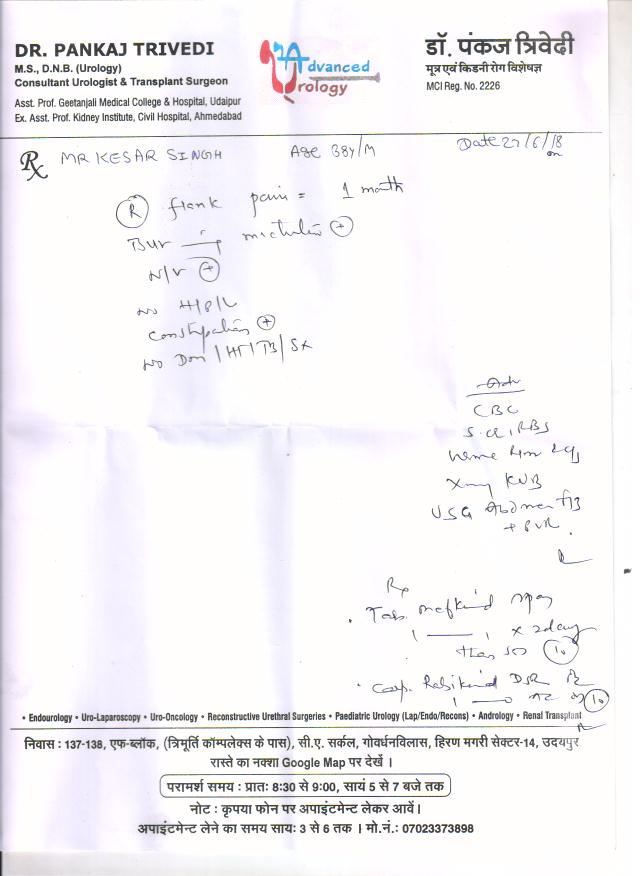 DR. PANKAJ TRIVEDI
M.S., D.N.B. (Urology)
Consultant Urologist & Transplant Surgeon
Asst. Prof. Geetanjali Medical College & Hospital, Udaipur
Ex. Asst. Prof. Kidney Institute, Civil Hospital, Ahmedabad
Advanced
Urology
डॉ. पंकज त्रिवेदी
मूत्र एवं किडनी रोग विशेषज्ञ
MCI Reg. No. 2226
Rx MR KESAR SINGH Age 38y/M Date 27/6/18
R flank pain = 1 month
micturition +
N/V +
No
Constipation +
No
Adv
CBC
RBS
Xray KUB
USG Abdomen
+ PVR
Rx
Tab.
1 — 1 x 2day
then SOS 10
Cap. Rabikind DSR
1 — 0 10
• Endourology • Uro-Laparoscopy • Uro-Oncology • Reconstructive Urethral Surgeries • Paediatric Urology (Lap/Endo/Recons) • Andrology • Renal Transplant
निवास : 137-138, एफ-ब्लॉक, (त्रिमूर्ति कॉम्पलेक्स के पास), सी.ए. सर्कल, गोवर्धनविलास, हिरण मगरी सेक्टर-14, उदयपुर
रास्ते का नक्शा Google Map पर देखें ।
परामर्श समय : प्रातः 8:30 से 9:00, सायं 5 से 7 बजे तक
नोट : कृपया फोन पर अपाइंटमेन्ट लेकर आयें ।
अपाइंटमेन्ट लेने का समय सायः 3 से 6 तक । मो.नं.: 07023373898